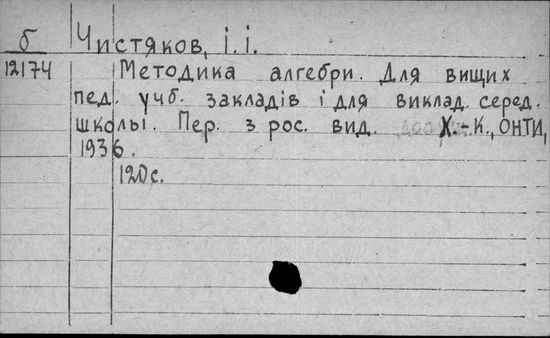 б Чистяков, І.І.
12174 Методика алгебри. Для вищих
пед. учб. закладів і для виклад. серед.
школы. Пер. з рос. вид. Х.-К., ОНТИ,
1936.
120с.